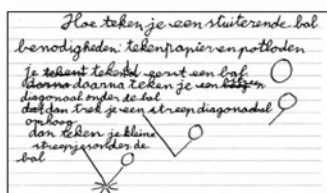 Hoe teken je een stuiterende bal
benodigheden: tekenpapier en potloden
je tekent eerst een bal
daarna teken je een
diagonaal onder de bal
dan trek je een streep diagonaal
omhoog
dan teken je kleine
streepjes onder de
bal